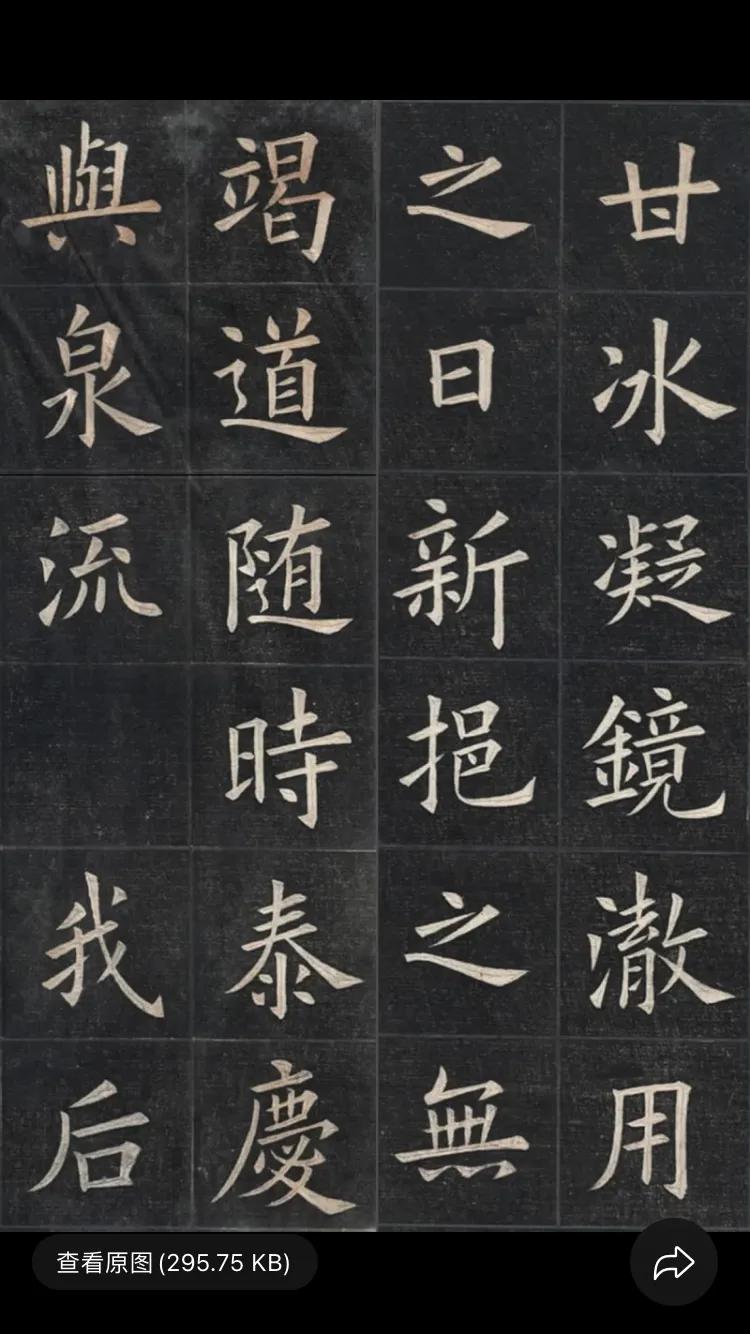 甘冰凝鏡澈用
之日新挹之無
竭道随時泰慶
與泉流 我后
查看原图(295.75 KB)